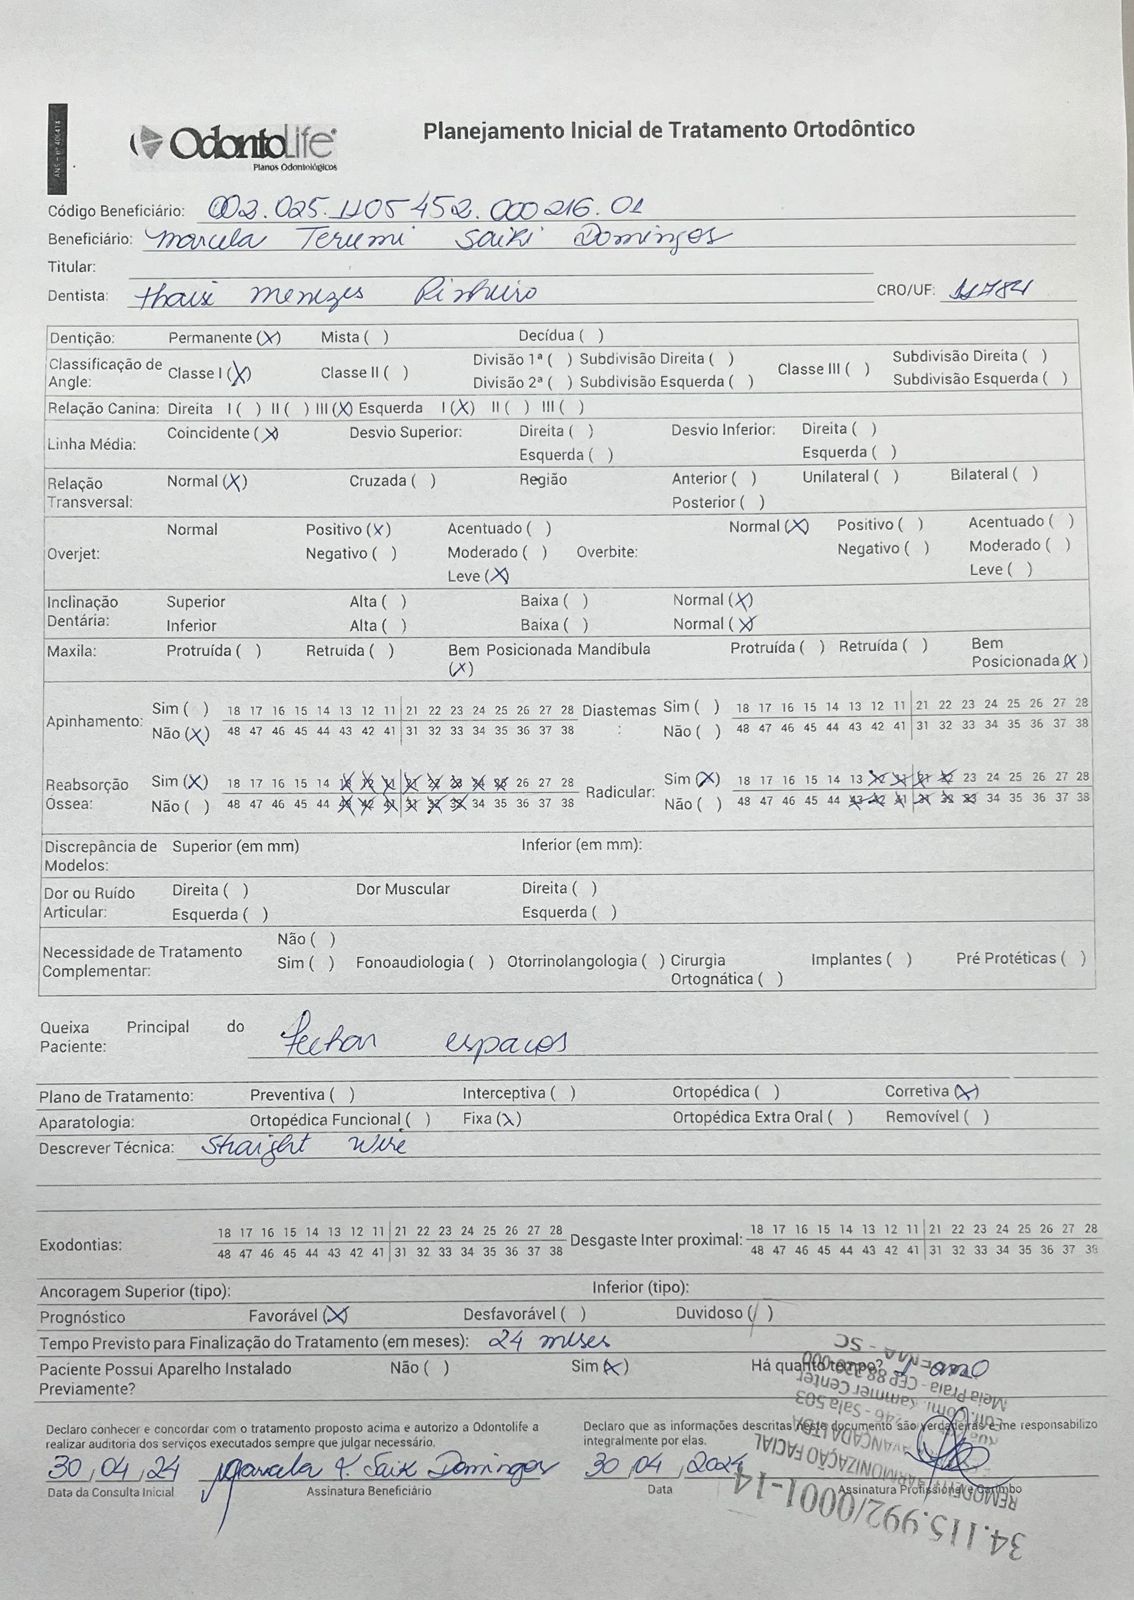 ANS - nº 406414
OdontoLife
Planos Odontológicos
Planejamento Inicial de Tratamento Ortodôntico
Código Beneficiário: 002.025.1105452.000216.01
Beneficiário: Marcela Terumi Saiki Domingos
Titular:
Dentista: Thaisi Menezes Pinheiro CRO/UF: 11784
Dentição: Permanente (X) Mista ( ) Decídua ( )
Classificação de Angle: Classe I (X) Classe II ( ) Divisão 1ª ( ) Subdivisão Direita ( ) Classe III ( ) Subdivisão Direita ( )
Divisão 2ª ( ) Subdivisão Esquerda ( ) Subdivisão Esquerda ( )
Relação Canina: Direita I ( ) II ( ) III (X) Esquerda I (X) II ( ) III ( )
Linha Média: Coincidente (X) Desvio Superior: Direita ( ) Desvio Inferior: Direita ( )
Esquerda ( ) Esquerda ( )
Relação Transversal: Normal (X) Cruzada ( ) Região Anterior ( ) Unilateral ( ) Bilateral ( )
Posterior ( )
Normal Positivo (X) Acentuado ( ) Normal (X) Positivo ( ) Acentuado ( )
Overjet: Negativo ( ) Moderado ( ) Overbite: Negativo ( ) Moderado ( )
Leve (X) Leve ( )
Inclinação Superior Alta ( ) Baixa ( ) Normal (X)
Dentária: Inferior Alta ( ) Baixa ( ) Normal (X)
Maxila: Protruída ( ) Retruída ( ) Bem Posicionada (X) Mandíbula Protruída ( ) Retruída ( ) Bem Posicionada (X)
Apinhamento: Sim ( ) 18 17 16 15 14 13 12 11 21 22 23 24 25 26 27 28 Diastemas : Sim ( ) 18 17 16 15 14 13 12 11 21 22 23 24 25 26 27 28
Não (X) 48 47 46 45 44 43 42 41 31 32 33 34 35 36 37 38 Não ( ) 48 47 46 45 44 43 42 41 31 32 33 34 35 36 37 38
Reabsorção Sim (X) 18 17 16 15 14 13 12 11 21 22 23 24 25 26 27 28 Radicular: Sim (X) 18 17 16 15 14 13 12 11 21 22 23 24 25 26 27 28
Óssea: Não ( ) 48 47 46 45 44 43 42 41 31 32 33 34 35 36 37 38 Não ( ) 48 47 46 45 44 43 42 41 31 32 33 34 35 36 37 38
Discrepância de Modelos: Superior (em mm) Inferior (em mm):
Dor ou Ruído Direita ( ) Dor Muscular Direita ( )
Articular: Esquerda ( ) Esquerda ( )
Necessidade de Tratamento Complementar: Não ( )
Sim ( ) Fonoaudiologia ( ) Otorrinolangologia ( ) Cirurgia Ortognática ( ) Implantes ( ) Pré Protéticas ( )
Queixa Principal do Paciente: Fechar espaços
Plano de Tratamento: Preventiva ( ) Interceptiva ( ) Ortopédica ( ) Corretiva (X)
Aparatologia: Ortopédica Funcional ( ) Fixa (X) Ortopédica Extra Oral ( ) Removível ( )
Descrever Técnica: Straight Wire
Exodontias: 18 17 16 15 14 13 12 11 21 22 23 24 25 26 27 28 Desgaste Inter proximal: 18 17 16 15 14 13 12 11 21 22 23 24 25 26 27 28
48 47 46 45 44 43 42 41 31 32 33 34 35 36 37 38 48 47 46 45 44 43 42 41 31 32 33 34 35 36 37 38
Ancoragem Superior (tipo): Inferior (tipo):
Prognóstico Favorável (X) Desfavorável ( ) Duvidoso ( )
Tempo Previsto para Finalização do Tratamento (em meses): 24 meses
Paciente Possui Aparelho Instalado Previamente? Não ( ) Sim (X) Há quanto tempo? 1 ano
Declaro conhecer e concordar com o tratamento proposto acima e autorizo a Odontolife a
realizar auditoria dos serviços executados sempre que julgar necessário.
Declaro que as informações descritas neste documento são verdadeiras e me responsabilizo
integralmente por elas.
30,04,24 Marcela T. Saik Domingos 30,04,2024
Data da Consulta Inicial Assinatura Beneficiário Data Assinatura Profissional e Carimbo
34.115.992/0001-14
HARMONIZAÇÃO FACIAL
AVANÇADA LTDA
Sala 503
Kammer Center
Meia Praia - CEP 88.220-000
- SC